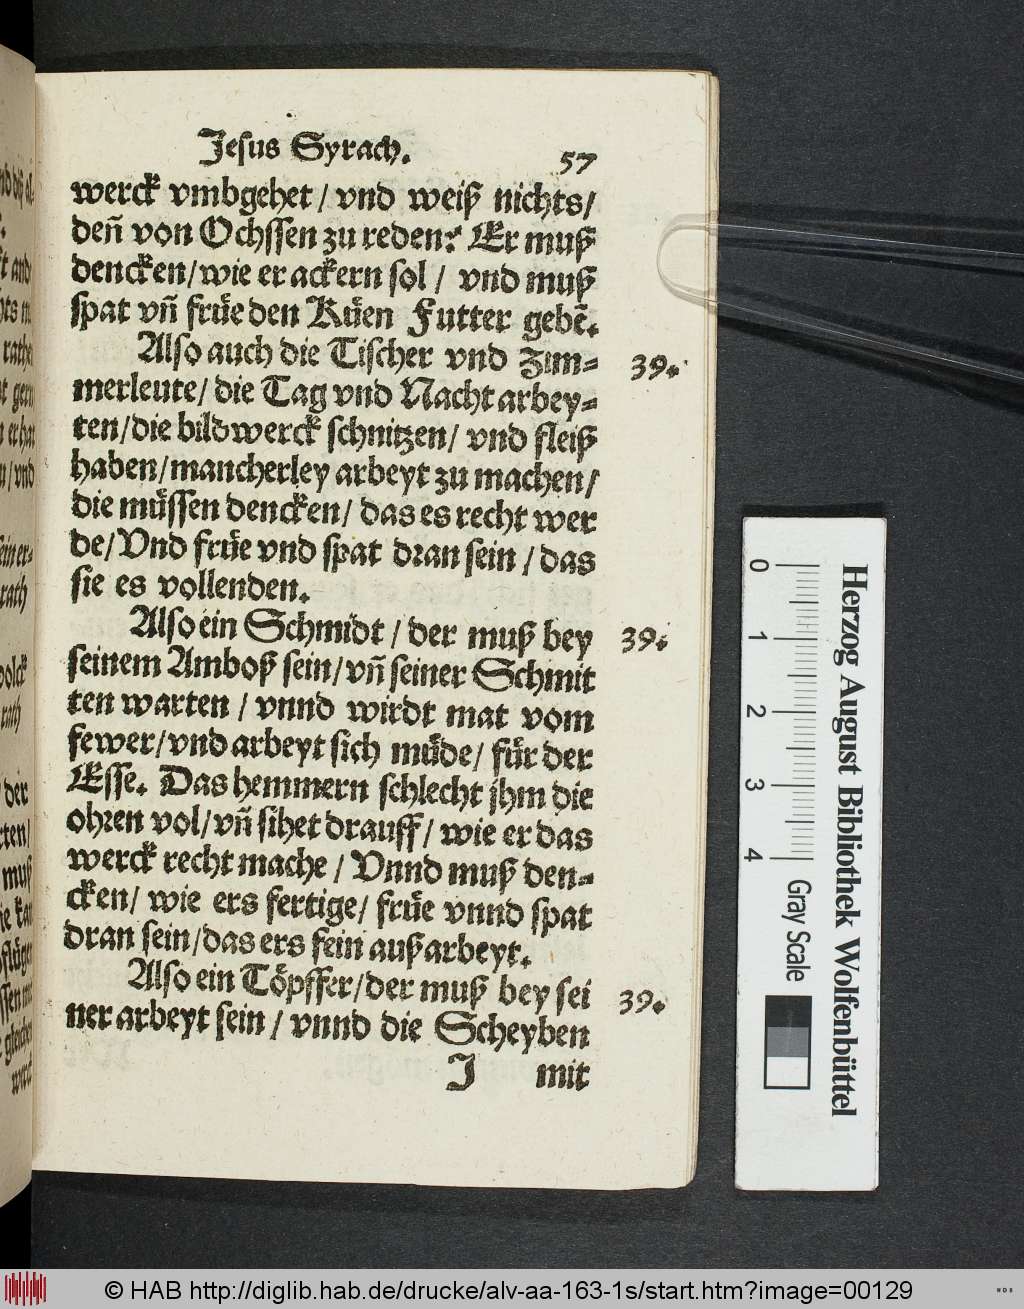 Jesus Syrach.
57
werck vmbgehet / vnd weiß nichts /
deñ von Ochssen zu reden? Er muß
dencken / wie er ackern sol / vnd muß
spat vñ früe den Küen Futter gebẽ.
Also auch die Tischer vnd Zim-
39.
merleute / die Tag vnd Nacht arbey-
ten / die bildwerck schnitzen / vnd fleiß
haben / mancherley arbeyt zu machen /
die müssen dencken / das es recht wer
de / Vnd früe vnd spat dran sein / das
sie es vollenden.
Also ein Schmidt / der muß bey
39.
seinem Amboß sein / vñ seiner Schmit
ten warten / vnnd wirdt mat vom
fewer / vnd arbeyt sich müde / für der
Esse. Das hemmern schlecht jhm die
ohren vol / vñ sihet drauff / wie er das
werck recht mache / Vnnd muß den-
cken / wie ers fertige / früe vnnd spat
dran sein / das ers fein außarbeyt.
Also ein Töpffer / der muß bey sei
39.
ner arbeyt sein / vnnd die Scheyben
J
mit
Herzog August Bibliothek Wolfenbüttel
0 1 2 3 4 Gray Scale
© HAB http://diglib.hab.de/drucke/alv-aa-163-1s/start.htm?image=00129